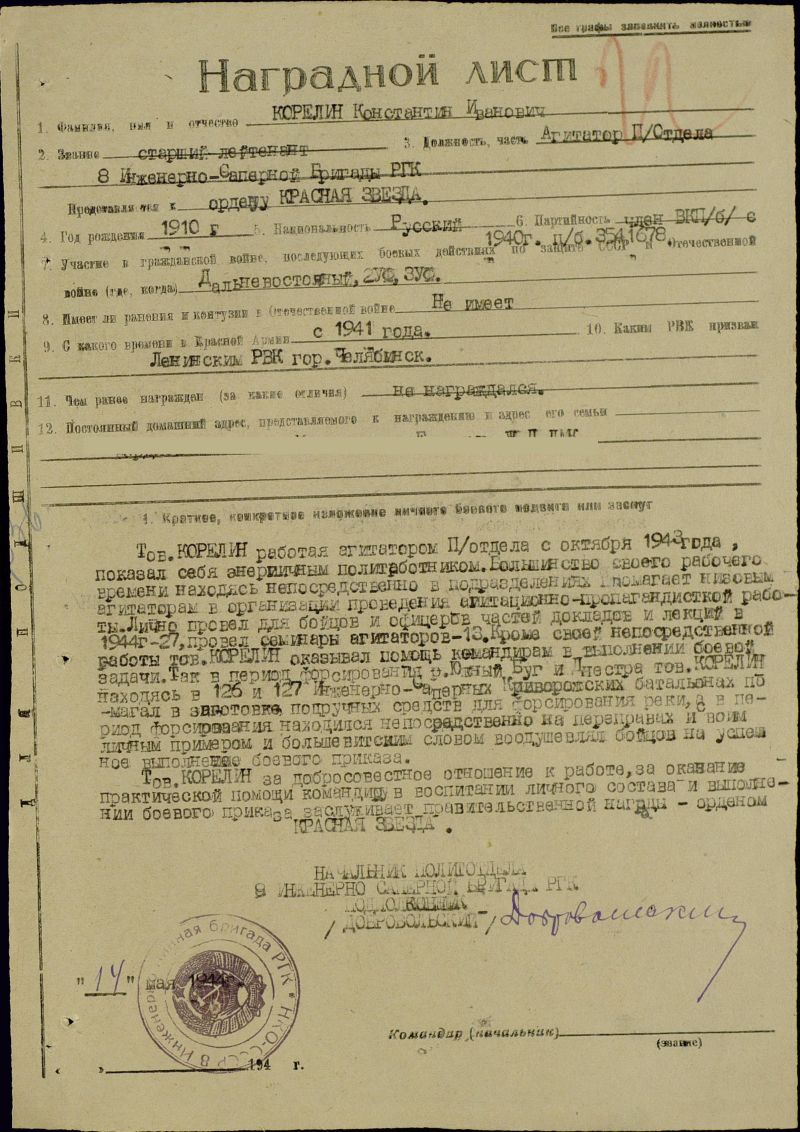 Все графы заполнять полностью
Наградной лист
1. Фамилия, имя и отчество КОРЕЛИН Константин Иванович
2. Звание старший лейтенант 3. Должность, часть Агитатор П/Отдела
8 Инженерно-Саперной Бригады РГК
Представляется к ордену КРАСНАЯ ЗВЕЗДА.
4. Год рождения 1910 г 5. Национальность Русский 6. Партийность член ВКП/б/ с
1940г. п/б. 3541678
7. Участие в гражданской войне, последующих боевых действиях по защите СССР и Отечественной
войне (где, когда) Дальневосточный, 2УФ, 3УФ.
8. Имеет ли ранения и контузии в Отечественной войне Не имеет
9. С какого времени в Красной Армии с 1941 года. 10. Каким РВК призван
Ленинским РВК гор. Челябинск.
11. Чем ранее награжден (за какие отличия) не награждался.
12. Постоянный домашний адрес, представляемого к награждению и адрес его семьи
1. Краткое, конкретное изложение личного боевого подвига или заслуг
Тов. КОРЕЛИН работая агитатором П/отдела с октября 1943 года,
показал себя энергичным политработником. Большинство своего рабочего
времени находясь непосредственно в подразделениях помогает низовым
агитаторам в организации проведения агитационно-пропагандисткой рабо-
ты. Лично провел для бойцов и офицеров частей докладов и лекций в
1944г-27, провел семинары агитаторов-13. Кроме своей непосредственной
работы тов. КОРЕЛИН оказывал помощь командирам в выполнении боевой
задачи. Так в период форсирования р. Южный Буг и Днестра тов. КОРЕЛИН
находясь в 126 и 127 Инженерно-Саперных Криворожских батальонах по
-магал в заготовке подручных средств для форсирования реки, а в пе-
риод форсирования находился непосредственно на переправах и воим
личным примером и большевитским словом воодушевлял бойцов на успеш
ное выполнение боевого приказа.
Тов. КОРЕЛИН за добросовестное отношение к работе, за оказание
практической помощи командиру в воспитании личного состава и выполне-
нии боевого приказа заслуживает правительственной награды - орденом
КРАСНАЯ ЗВЕЗДА.
НАЧАЛЬНИК ПОЛИТОТДЕЛА
8 ИНЖЕНЕРНО САПЕРНОЙ БРИГАДЫ РГК
ПОДПОЛКОВНИК
/ДОБРОВОЛЬСКИЙ/ Добровольский
"14" мая 1944г.
НКО-СССР 8 Инженерно бригада РГК
Командир (начальник)
(звание)
« » 194 г.